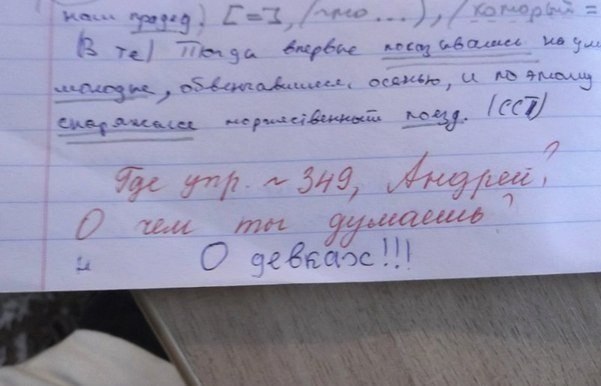 наш прадед). [=], (что...), (который =
(В те) Тогда впервые показывались на ули
молодые, обвенчавшиеся осенью, и по этому
снаряжался торжественный поезд. (ССП)
Где упр. ~ 349, Андрей?
О чем ты думаешь?
О девках!!!